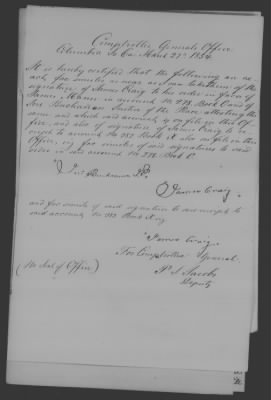 Comptroller Generals Office
Columbia So Ca March 27th 1854
It is hereby certified that the following are ex-
act fac similes as near as can be taken of the
signature of James Craig to his order in favor of
James Mann in account No 278 Book C and of
Jno Buchanan Justice of the Peace attesting the
same and which said account is on file in this Of-
fice, and also of signature of James Craig to re-
ceipt to account No 353 Book X also on file in this
Office viz fac similes of said signatures to said
order in said account No 278 Book C
"Jno Buchanan J.P."
"James Craig"
and fac simile of said signature to said receipt to
said account No 353 Book X viz
"James Craig"
For Comptroller General
Jacobs
Deputy
(No Seal of Office)